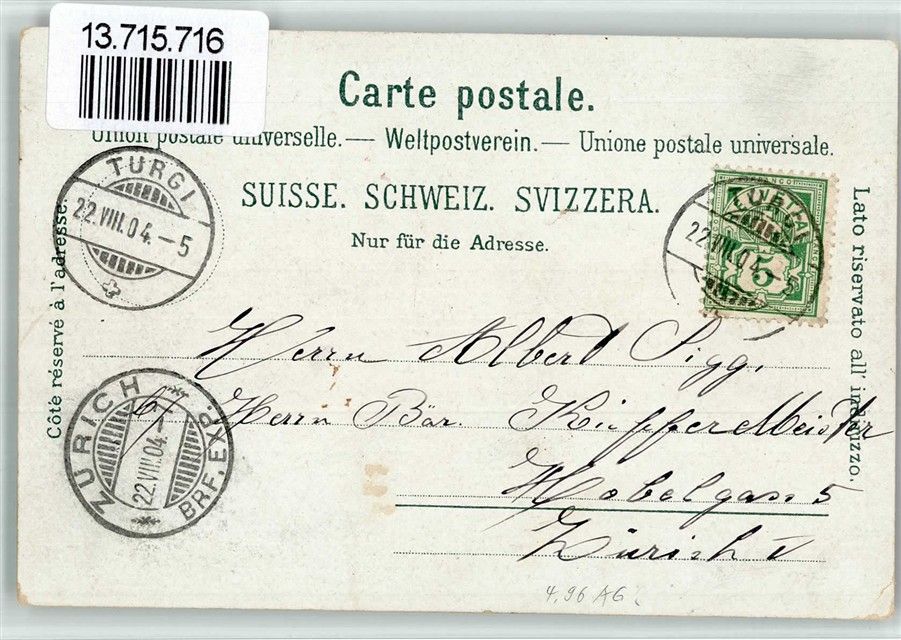 13.715.716
Carte postale.
Union postale universelle. — Weltpostverein. — Unione postale universale.
SUISSE. SCHWEIZ. SVIZZERA.
Nur für die Adresse.
Côté réservé à l'adresse.
Lato riservato all' indirizzo.
TURGI
22.VIII.04.-5
22.VIII.04-5
5
Herrn Albert Sigg.
Herrn Bär. Küffermeister
Zürich V
ZÜRICH
22.VIII.04.-
BRF. EXP.
4,96 AG